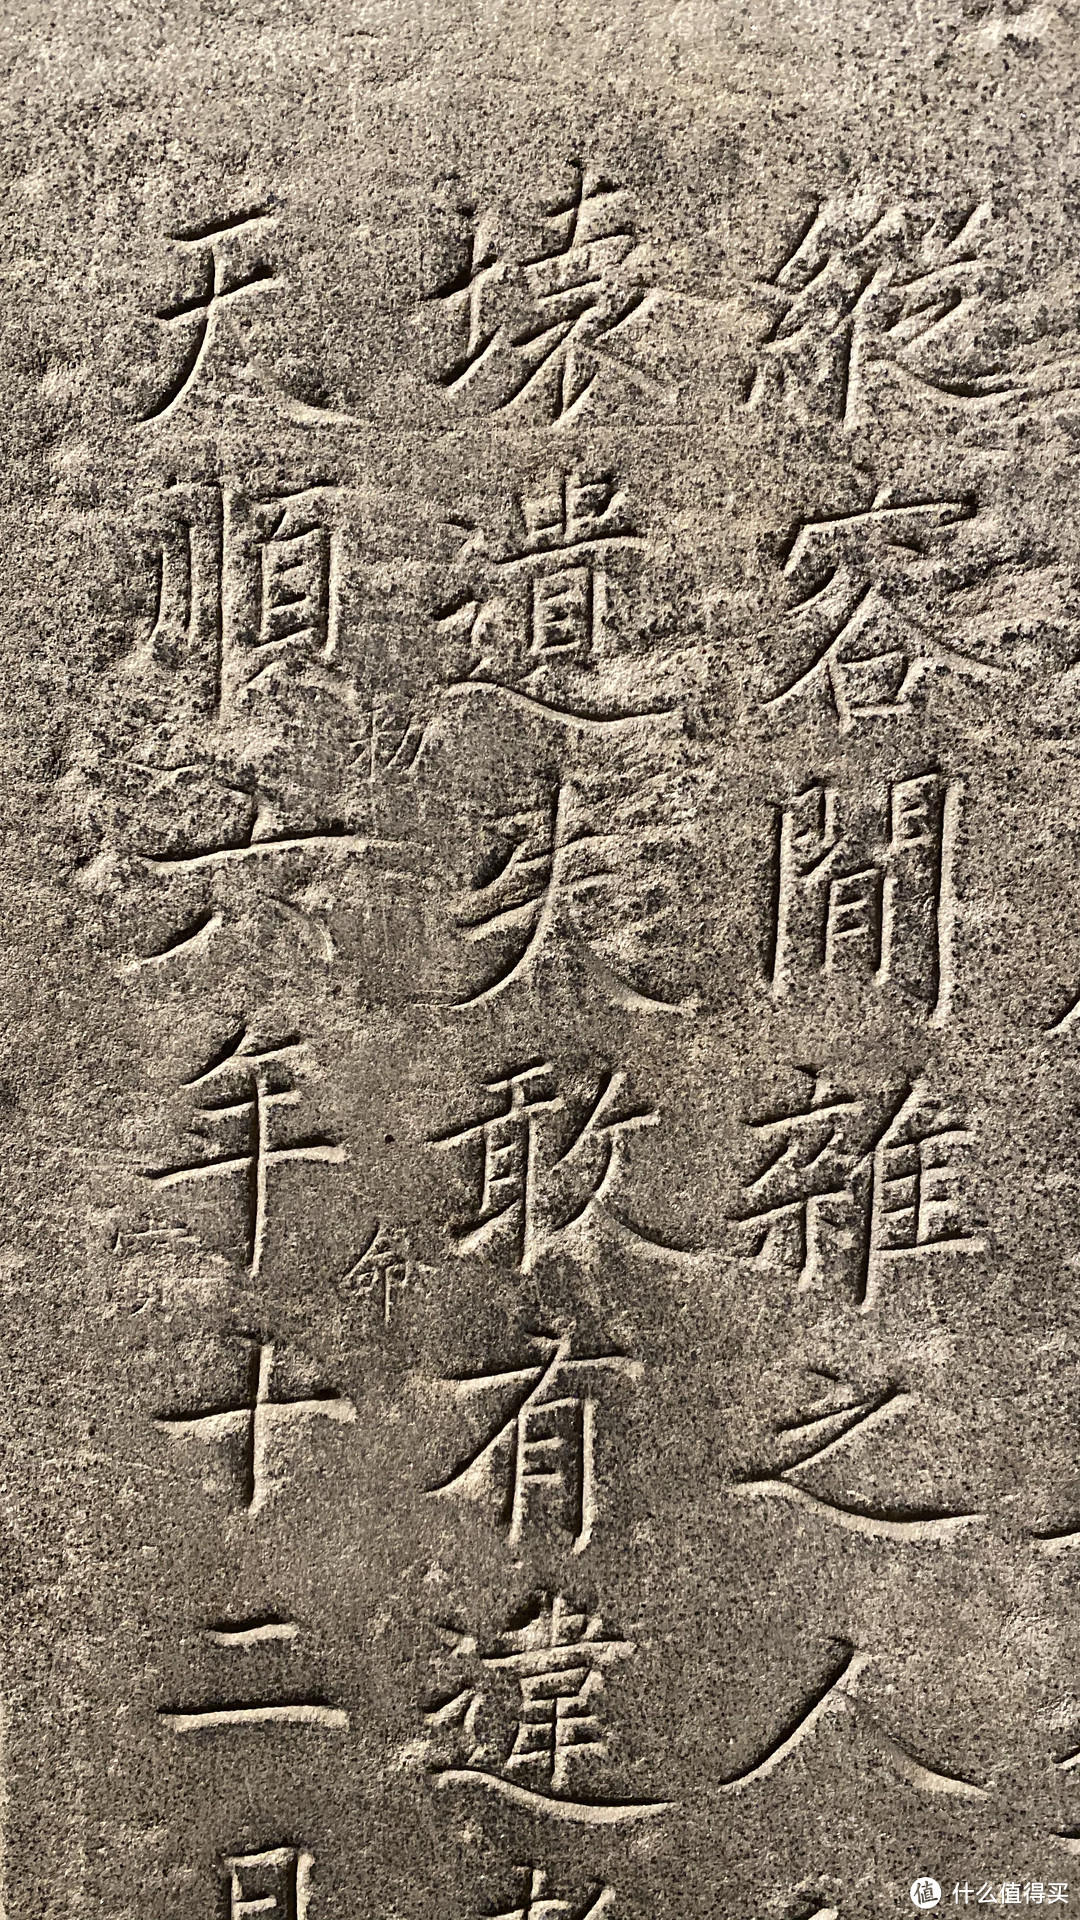 縱容閒雜之人
壞遺失敢有違
天順六年十二月
命
值 什么值得买